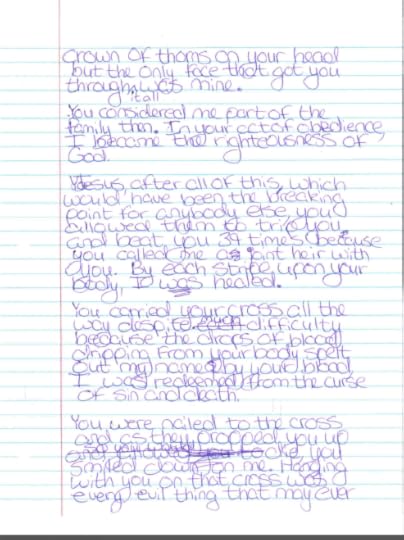 crown of thorns on your head
but the only face that got you
through it all was mine.
You considered me part of the
family then. In your act of obedience,
I became the righteousness of
God.
Jesus, after all of this, which
would have been the breaking
point for anybody else, you
allowed them to strip you
and beat you 39 times because
you called me a joint heir with
you. By each stripe upon your
body, I was healed.
You carried your cross all the
way despite much difficulty
because the drops of blood
dripping from your body spelt
out my name & by your blood
I was redeemed from the curse
of sin and death.
You were nailed to the cross
and as they propped you up
you
smiled down on me. Hanging
with you on that cross was
every evil thing that may ever